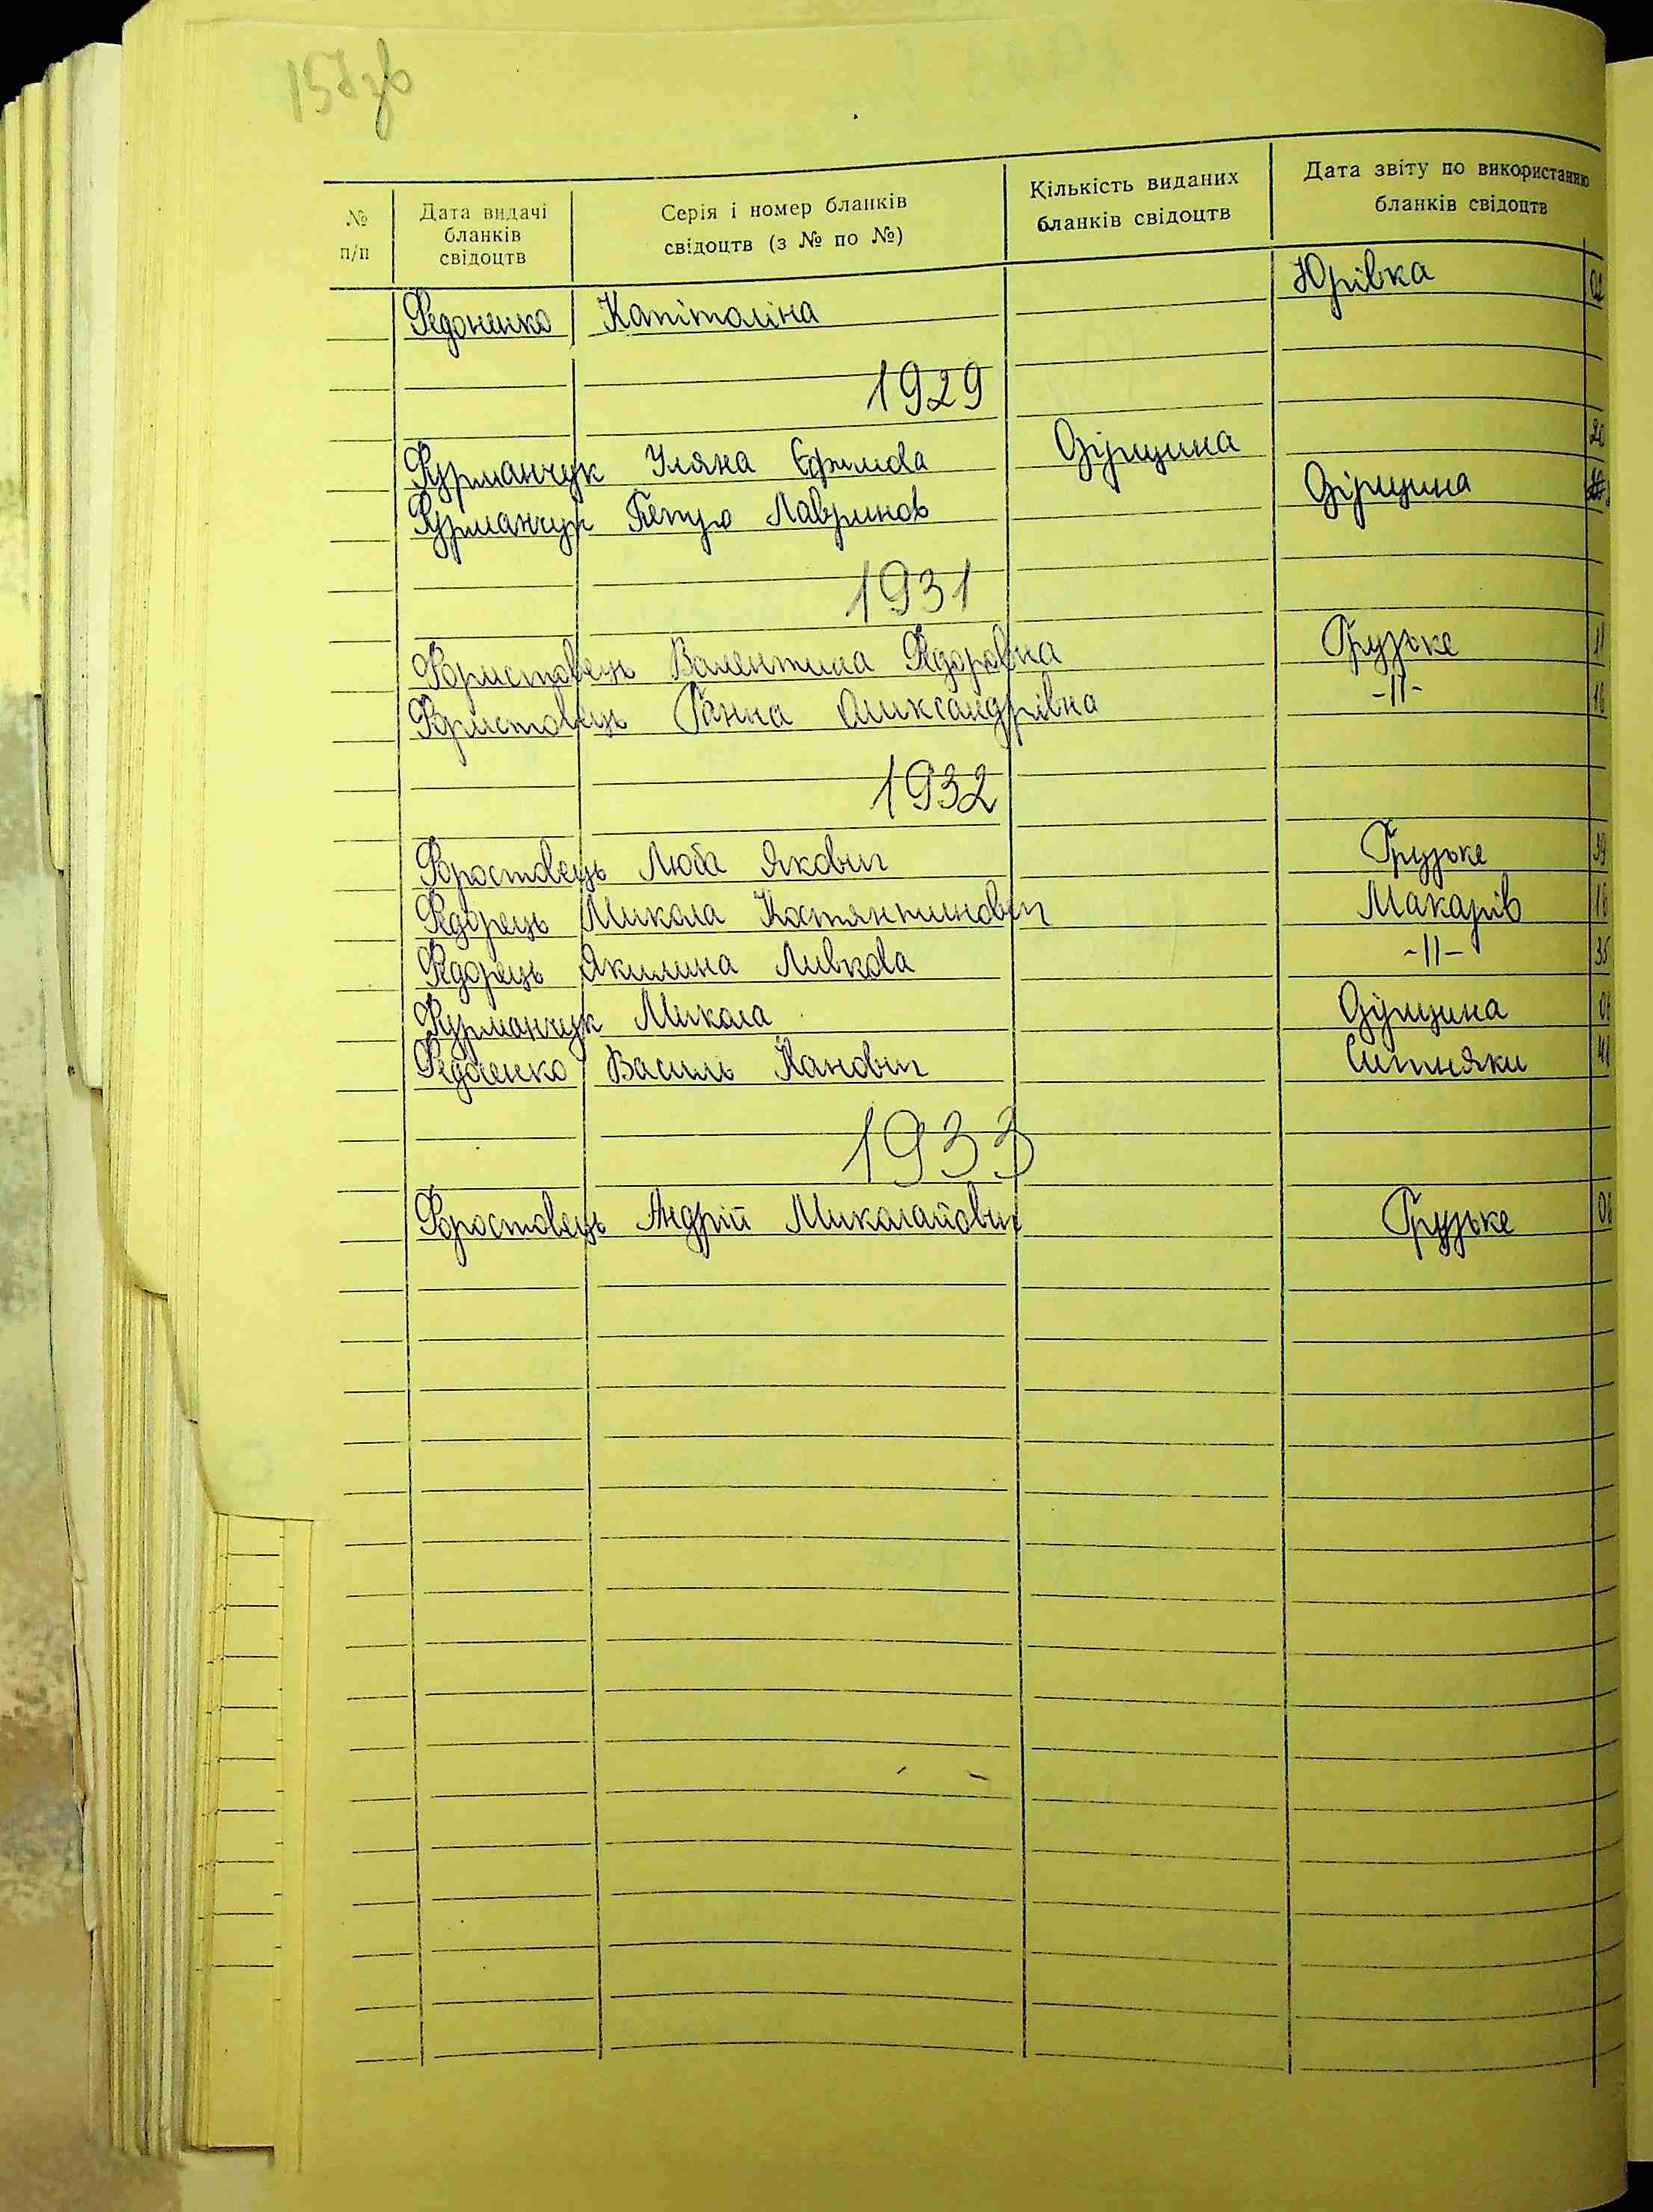 157зв
№ п/п
Дата видачі бланків свідоцтв
Серія і номер бланків свідоцтв (з № по №)
Кількість виданих бланків свідоцтв
Дата звіту по використанню бланків свідоцтв
Федоненко Капіталіна Юрівка 02
1929
Фурманчук Уляна Єфимова Фірщина 20
Фурманчук Петро Лавринов Фірщина
1931
Фористовець Валентина Федоровна Грузьке 11
Фористовець Ганна Олександрівна -11- 16
1932
Форостовець Люба Якович Грузьке 39
Федорець Микола Костянтинович Макарів 16
Федорець Якилина Ливкова -11- 35
Фурманчук Микола
Федоенко Василь Ситняки
1933
Форостовець Андрій Миколайович Грузьке